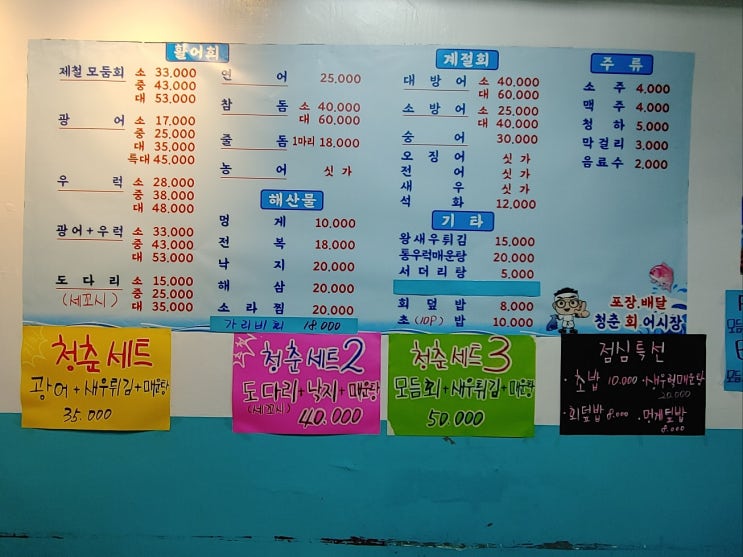 활어회
제철 모둠회 소 33,000
중 43,000
대 53,000
광어 소 17,000
중 25,000
대 35,000
특대 45,000
우럭 소 28,000
중 38,000
대 48,000
광어+우럭 소 33,000
중 43,000
대 53,000
도다리 소 15,000
(세꼬시) 중 25,000
대 35,000
연어 25,000
참돔 소 40,000
대 60,000
줄돔 1마리 18,000
농어 싯가
해산물
멍게 10,000
전복 18,000
낙지 20,000
해삼 20,000
소라찜 20,000
가리비회 18.000
계절회
대방어 소 40,000
대 60,000
소방어 소 25,000
대 40,000
숭어 30,000
오징어 싯가
전어 싯가
새우 싯가
석화 12,000
기타
왕새우튀김 15,000
통우럭매운탕 20,000
서더리탕 5,000
회덮밥 8,000
초(10P)밥 10,000
주류
소주 4,000
맥주 4,000
청하 5,000
막걸리 3,000
음료수 2,000
포장.배달
청춘 회 어시장
청춘세트
광어+새우튀김+매운탕
35.000
청춘세트2
도다리+낙지+매운탕
(세꼬시) 40.000
청춘세트3
모둠회+새우튀김+매운탕
50.000
점심특선
·초밥 10.000 ·새우럭매운탕
20.000
·회덮밥 8.000 ·멍게덮밥
8.000